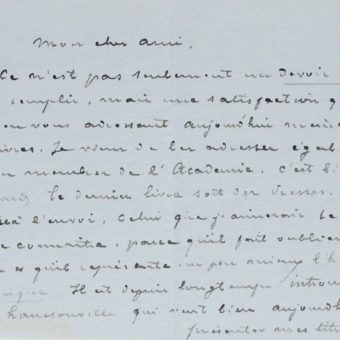 Mon cher ami.
Ce n'est pas seulement un devoir
remplir, mais une satisfaction q
en vous adressant aujourd'hui mes
livres. Je viens de les adresser égal
membres de l'Académie. C'est l
le dernier livre soit des
à l'envoi, celui que j'aimerais le
connaître, parce qu'il fait oublier
et qu'il représente un peu mieux l'h
Il est depuis longtemps
d'Haussonville qui veut bien aujourd'h
présenter mes tit